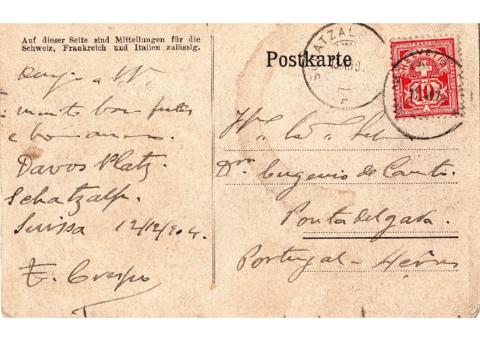 Auf dieser Seite sind Mitteilungen für die
Schweiz, Frankreich und Italien zulässig.
Postkarte
SCHATZALP
HELVETIA
FRANCO
10
a
muito boas
e bom anno.
Davos Platz.
Schatzalp.
Suissa 12/12/904.
E. Crespo
Dr. Eugenio do Canto
Ponta delgada.
Portugal